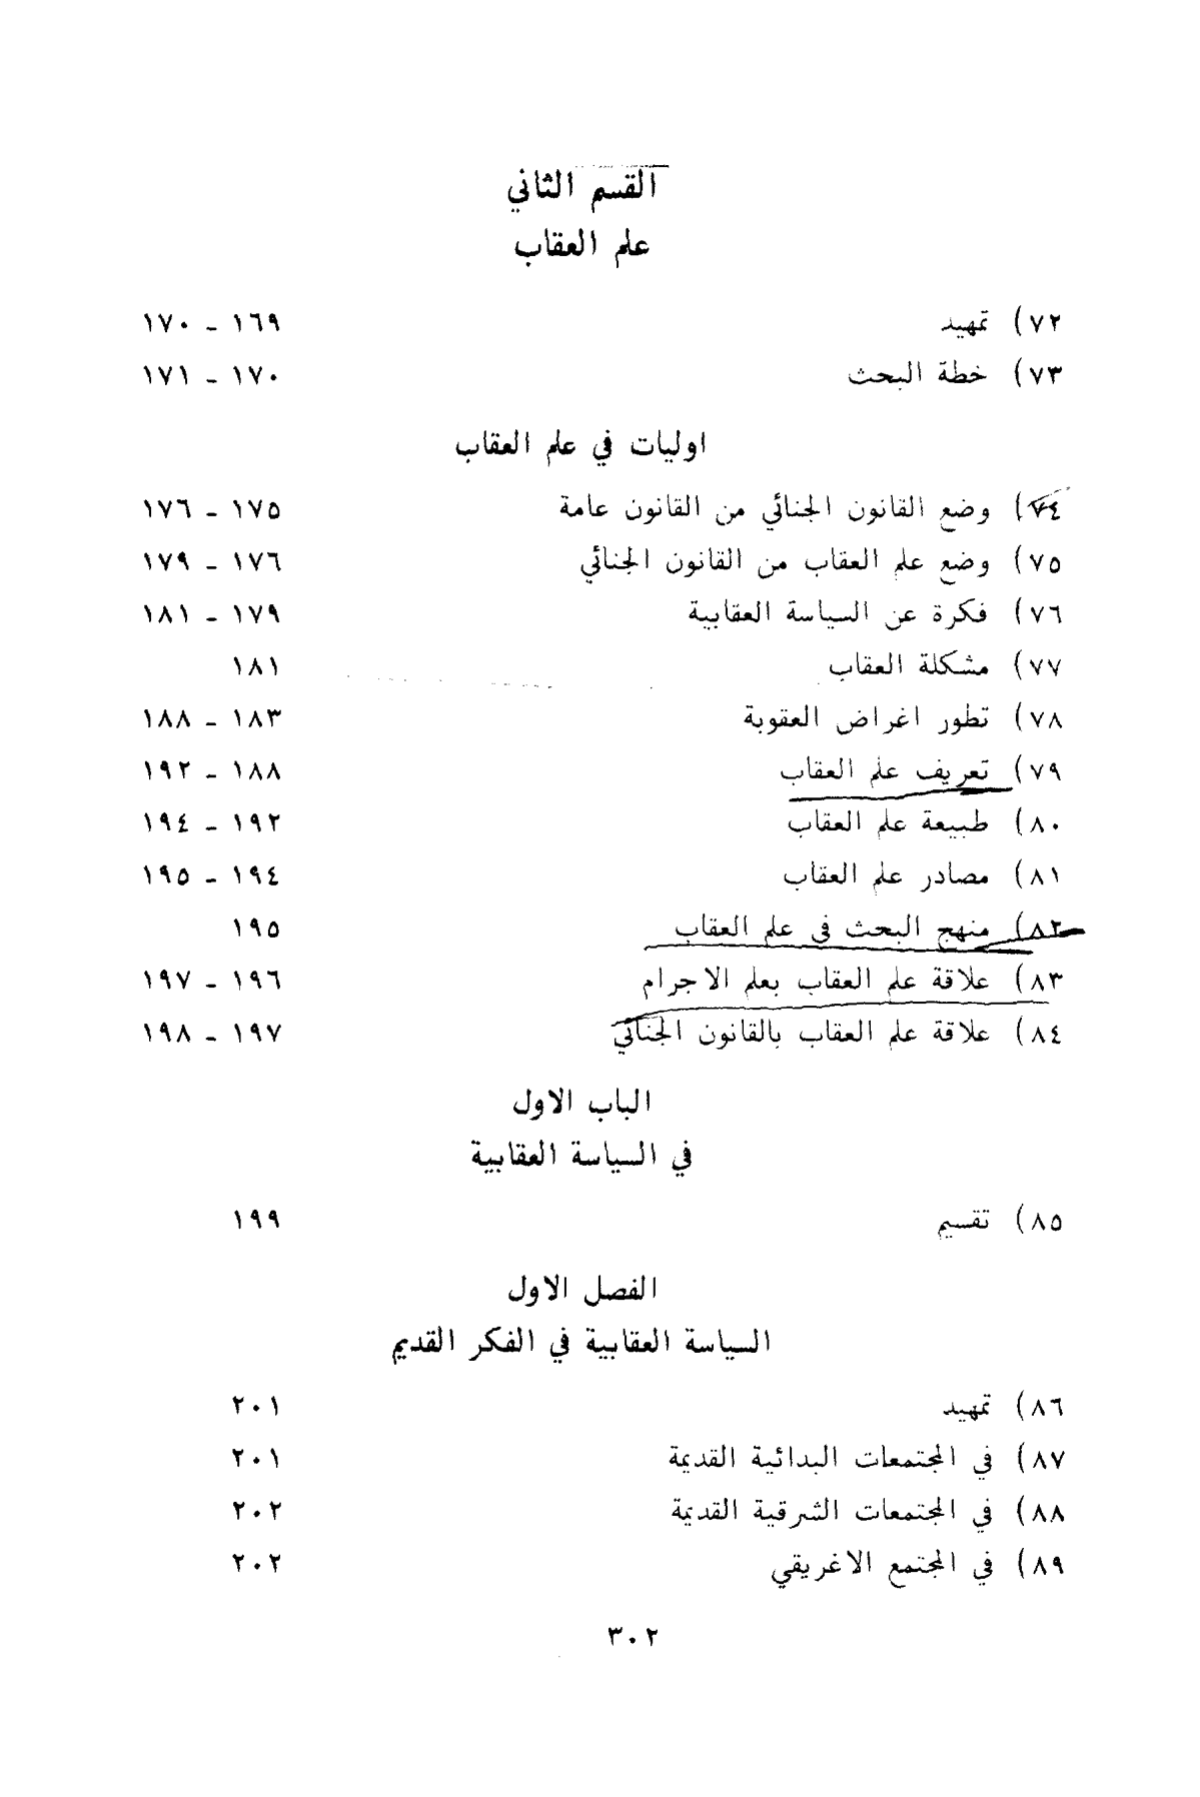 القسم الثاني
علم العقاب
٧٢) تمهيد ١٦٩ ـ ١٧٠
٧٣) خطة البحث ١٧٠ ـ ١٧١
اوليات في علم العقاب
٧٤) وضع القانون الجنائي من القانون عامة ١٧٥ ـ ١٧٦
٧٥) وضع علم العقاب من القانون الجنائي ١٧٦ ـ ١٧٩
٧٦) فكرة عن السياسة العقابية ١٧٩ ـ ١٨١
٧٧) مشكلة العقاب ١٨١
٧٨) تطور اغراض العقوبة ١٨٣ ـ ١٨٨
٧٩) تعريف علم العقاب ١٨٨ ـ ١٩٢
٨٠) طبيعة علم العقاب ١٩٢ ـ ١٩٤
٨١) مصادر علم العقاب ١٩٤ ـ ١٩٥
٨٢) منهج البحث في علم العقاب ١٩٥
٨٣) علاقة علم العقاب بعلم الاجرام ١٩٦ ـ ١٩٧
٨٤) علاقة علم العقاب بالقانون الجنائي ١٩٧ ـ ١٩٨
الباب الاول
في السياسة العقابية
٨٥) تقسيم ١٩٩
الفصل الاول
السياسة العقابية في الفكر القديم
٨٦) تمهيد ٢٠١
٨٧) في المجتمعات البدائية القديمة ٢٠١
٨٨) في المجتمعات الشرقية القديمة ٢٠٢
٨٩) في المجتمع الاغريقي ٢٠٢
٣٠٢